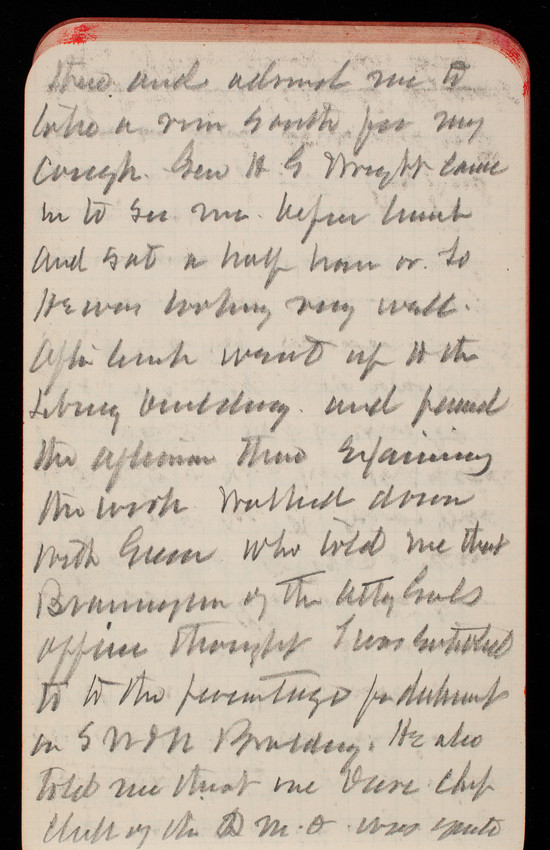 there and advised me to
take a run South for my
cough. Gen H G Wright came
in to see me. before lunch
and sat a half hour or so
He was looking very well.
After lunch went up to the
Library building. and passed
the afternoon there Examining
the work Walked down
with Green who told me that
of the Atty Genls
office thought I was entitled
to to the percentage
on S W & N Building. He also
told me that one Chf
Clerk of the Q M. D was quite